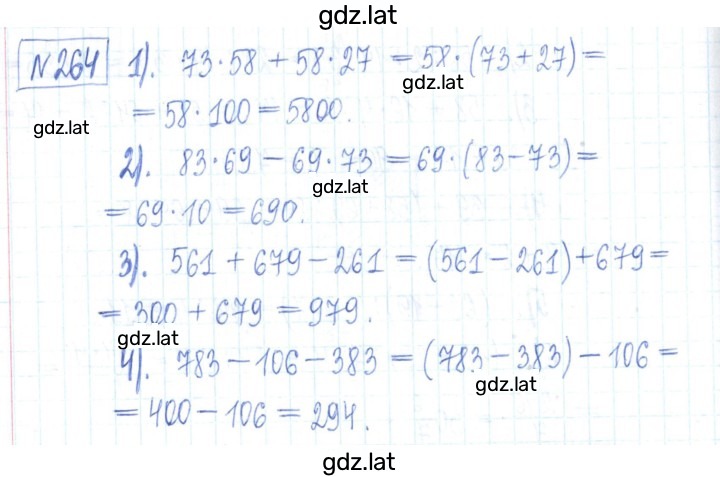 gdz.lat
№264 1). 73·58 + 58·27 = 58·(73+27) =
gdz.lat
= 58·100 = 5800.
gdz.lat
2). 83·69 − 69·73 = 69·(83−73) =
gdz.lat
= 69·10 = 690.
3). 561 + 679 − 261 = (561 − 261) + 679 =
= 300 + 679 = 979.
gdz.lat
4). 783 − 106 − 383 = (783 − 383) − 106 =
gdz.lat
= 400 − 106 = 294.
gdz.lat